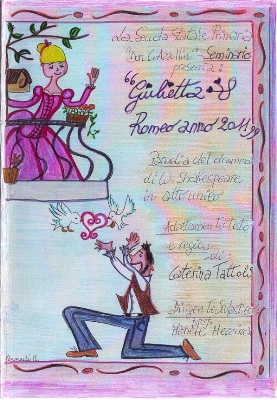 La Scuola Statale Primaria
"Don G. Avellino" - Seminario
presenta:
"Giulietta &
Romeo anno 2011"
Parodia del dramma
di W. Shakespeare
in atto unico
Adattamento testo
e regia
di
Caterina Tattoli
Dirigente Scolastico